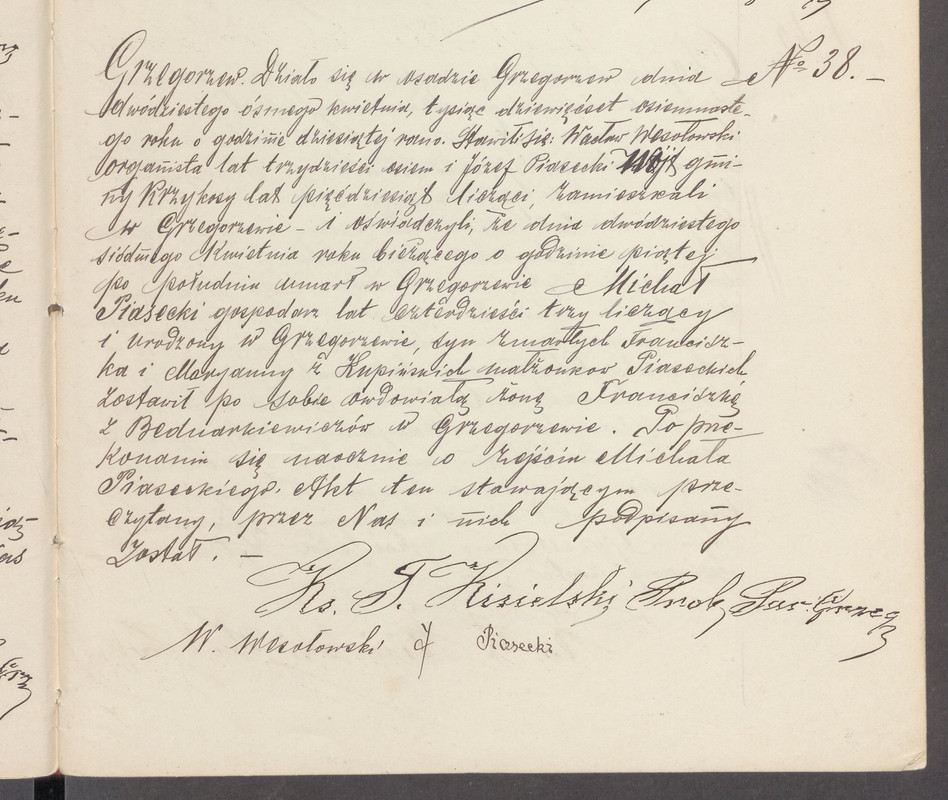 Grzegorzew. Działo się w osadzie Grzegorzew dnia No 38. –
dwódziestego ósmego kwietnia, tysiąc dziewięćset osiemnaste-
go roku o godzinie dziesiątej rano. Stawili się: Wacław Wesołowski
organista lat trzydzieści osiem i Józef Piasecki wójt gmi-
ny Krzykosy lat pięćdziesiąt liczący, zamieszkali
w Grzegorzewie – i oświadczyli, że dnia dwódziestego
siódmego Kwietnia roku bieżącego o godzinie piątej
po południu umarł w Grzegorzewie Michał
Piasecki gospodarz lat czterdzieści trzy liczący
i urodzony w Grzegorzewie, syn zmarłych Francisz-
ka i Maryanny z Kupińskich małżonków Piaseckich
Zostawił po sobie owdowiałą żonę Franciszkę
z Bednarkiewiczów w Grzegorzewie. Po prze-
konaniu się naocznie o zejściu Michała
Piaseckiego. Akt ten stawającym prze-
czytany, przez Nas i nich podpisany
został. –
Ks. F. Kisielski Prob. Par. Grzeg
W. Wesołowski J Piasecki